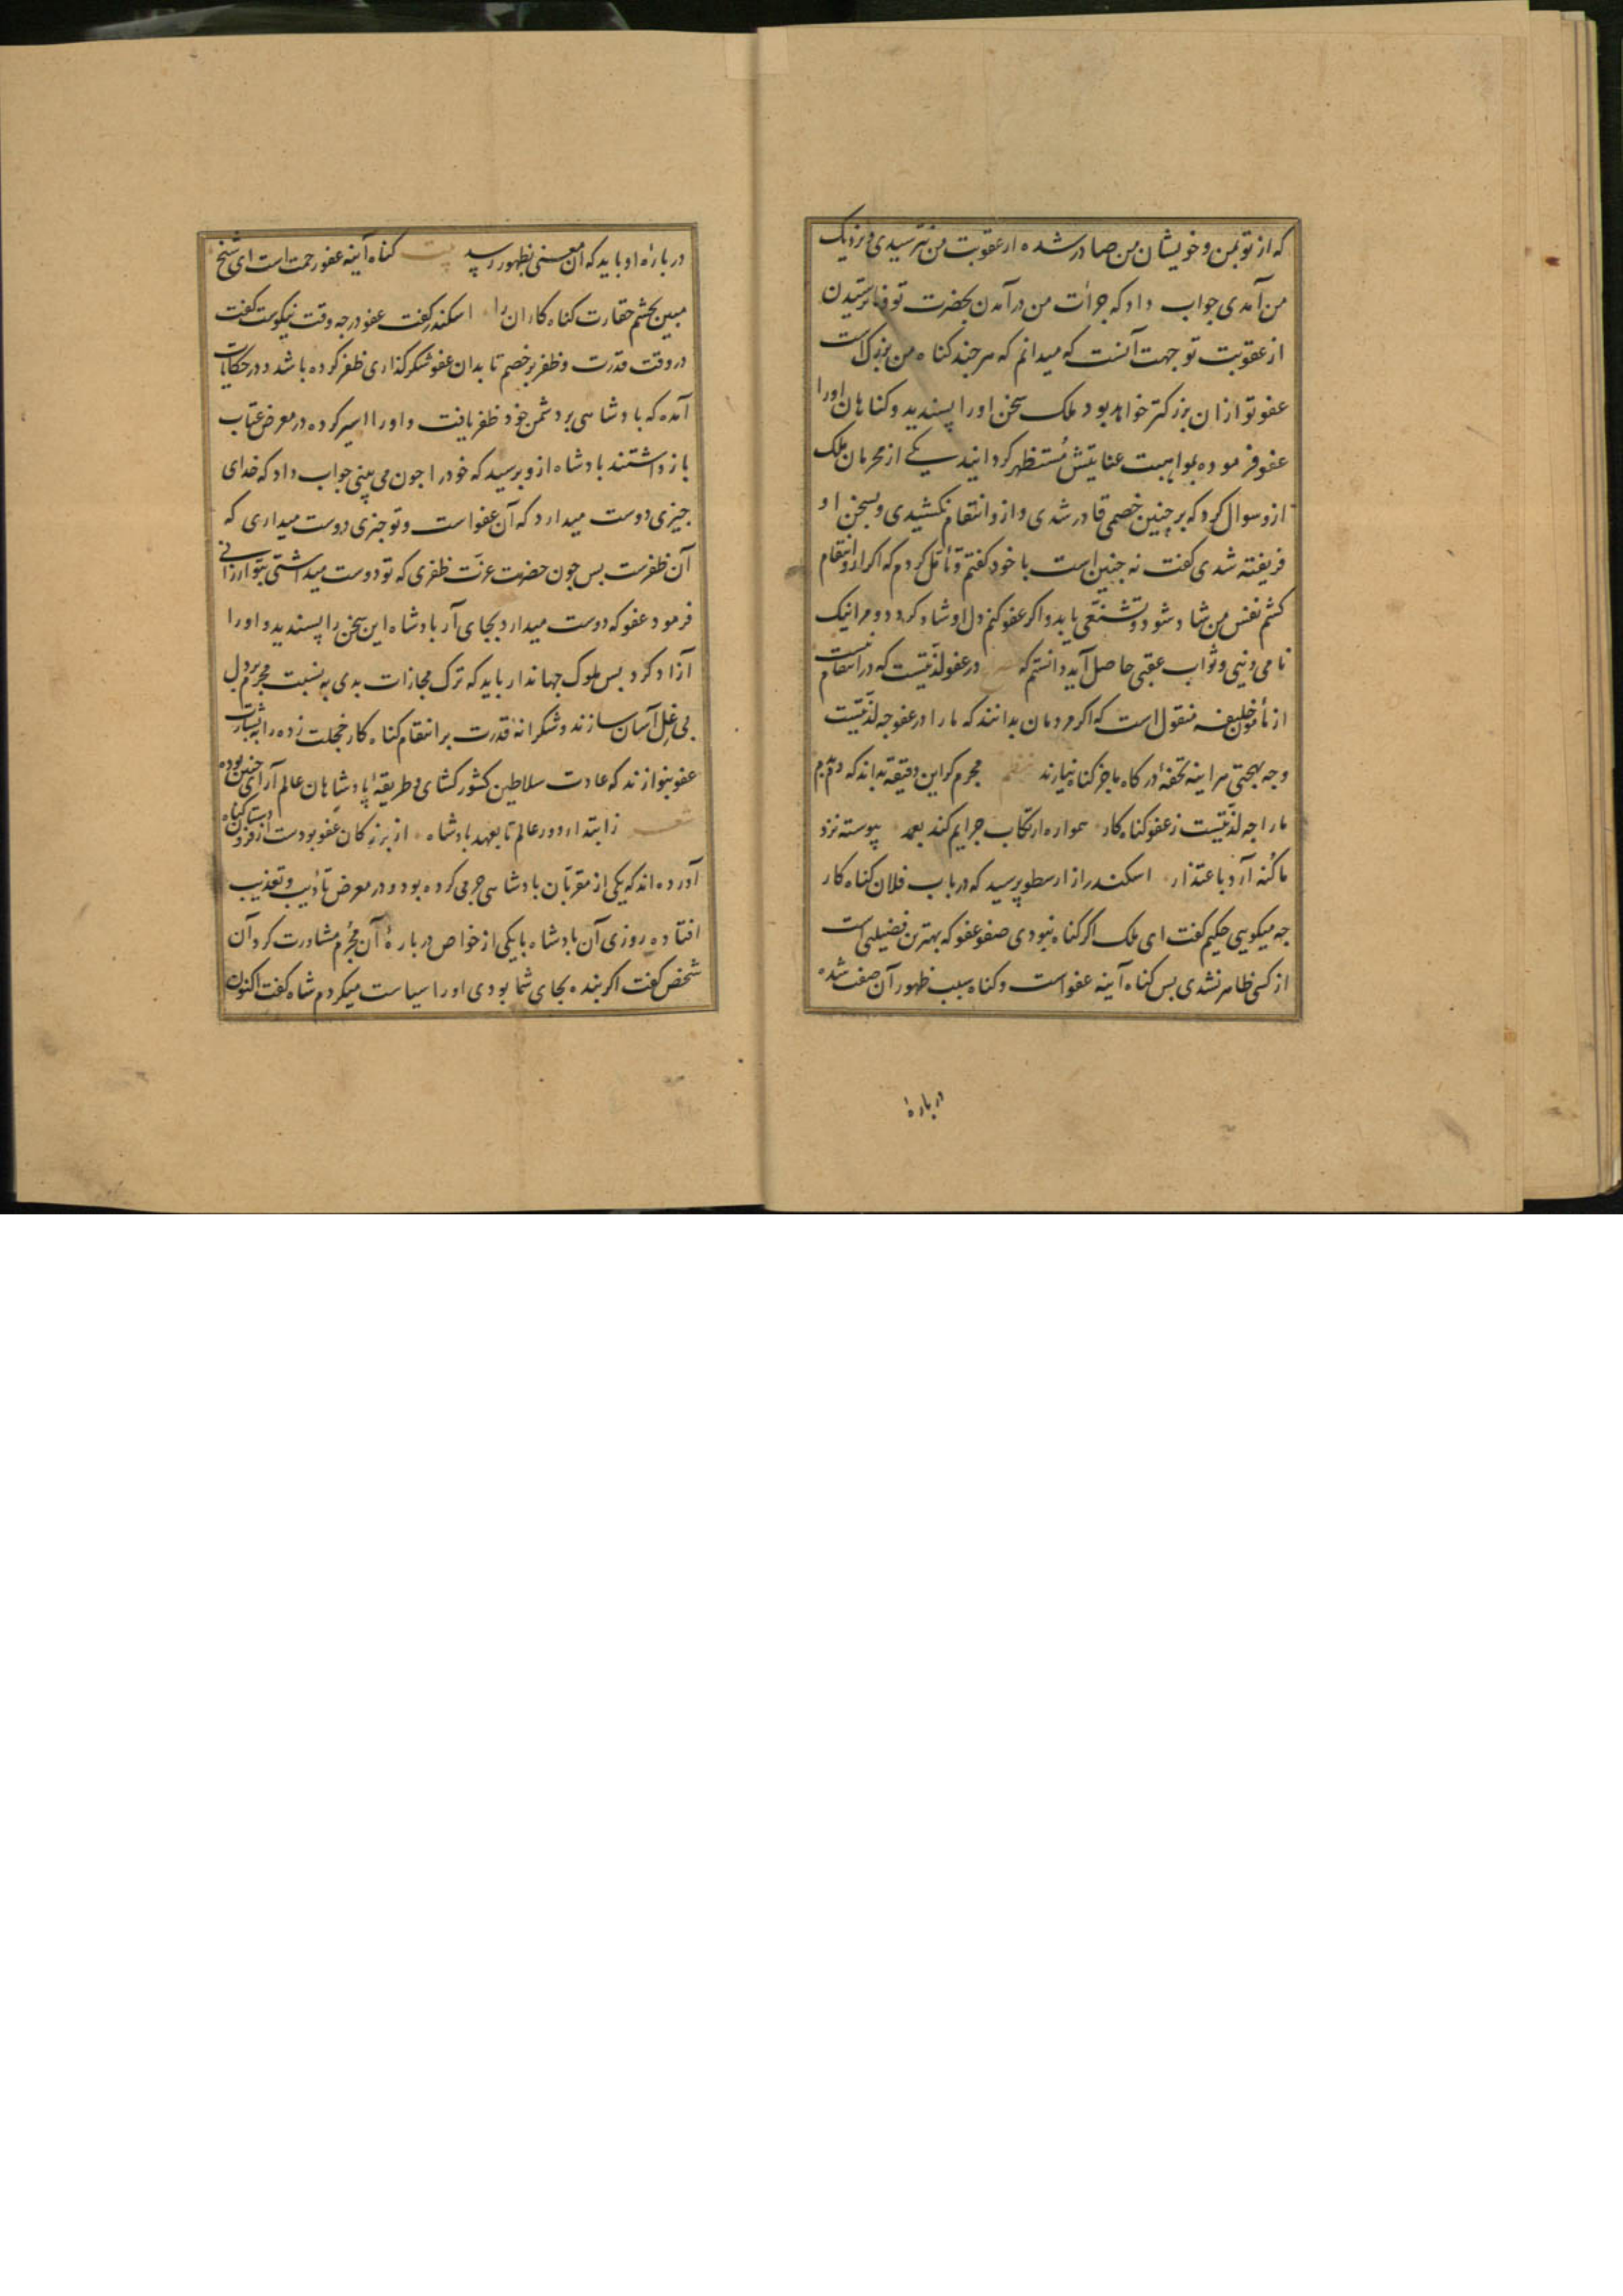 که از تو بمن و خویشان من صادر شده از عقوبت من نترسیدی و نزدیک
من آمدی جواب داد که جرأت من در آمدن بحضرت تو و ناترسیدن
از عقوبت تو جهت آنست که میدانم که هر چند کناه من بزرک است
عفو تو از ان بزرکتر خواهد بود ملک سخن او را پسندید و کناهان او را
عفو فرموده بمواهبت عنایتش مُستظهر کردانید یکی از محرمان ملک
ازو سوال کرد که بر چنین خصمی قادر شدی و ازو انتقام نکشیدی و بسخن او
فریفته شدی کفت نه چنین است با خود کفتم و تأمّل کردم که اکر ازو انتقام
کشم نفس من شاد شود و تشفّی یابد و اکر عفو کنم دل او شاد کردد و مرا نیک
نامی دنیی و ثواب عقبی حاصل آید دانستم که در عفو لذّتیست که در انتقام نیست
از مأمون خلیفه منقول است که اکر مردمان بدانند که ما را در عفو چه لذّتیست
و چه بهجتی هر اینه تحفۀ درکاه ما جز کناه نیارند نظم مجرم کر این دقیقه بداند که دم بدم
ما را چه لذّتیست ز عفو کناه کار همواره ارتکاب جرایم کند بعمد پیوسته نزد
ما کُنه آرد باعتذار اسکندر از ارسطو پرسید که در باب فلان کناه کار
چه میکویی حکیم کفت ای ملک اکر کناه نبودی صفو عفو که بهترین فضیلتی است
از کسی ظاهر نشدی بس کناه آینه عفو است و کناه سبب ظهور آن صفت شده
دربارۀ
دربارۀ او باید که آن معنی بظهور رسد بیت کناه آینه عفو رحمت است ای شیخ
مبین بچشم حقارت کناه کاران را اسکندر کفت عفو در چه وقت نیکوست کفت
در وقت قدرت و ظفر بر خصم تا بدان عفو شکرکذاری ظفر کرده باشد و در حکایات
آمده که بادشاهی بر دشمن خود ظفر یافت و او را اسیر کرده در معرض عتاب
بازداشتند بادشاه ازو برسید که خود را جون می بینی جواب داد که خدای
جیزی دوست میدارد که آن عفو است و تو جیزی دوست میداری که
آن ظفرست بس جون حضرت عزّت ظفری که تو دوست میداشتی بتو ارزانی
فرمود عفو که دوست میدارد بجای آر بادشاه این سخن را پسندید و او را
آزاد کرد بس ملوک جهاندار باید که ترک مجازات بدی به نسبت مجرم بر دل
بی غِل آسان سازند و شکرانۀ قدرت بر انتقام کناه کار خجلت زده را به بشارت
عفو بنوازند که عادت سلاطین کشورکشای و طریقۀ پادشاهان عالم آرای چنین بوده
شعر ز ابتداء دور عالم تا بعهد بادشاه از بزرکان عفو بودست از فرودستان کناه
آورده اند که یکی از مقربّان بادشاهی جرمی کرده بود و در معرض تأدیب و تعذیب
افتاده روزی آن بادشاه با یکی از خواص دربارۀ آن مُجرم مشاورت کرد آن
شخص کفت اکر بنده بجای شما بودی او را سیاست میکردم شاه کفت اکنون